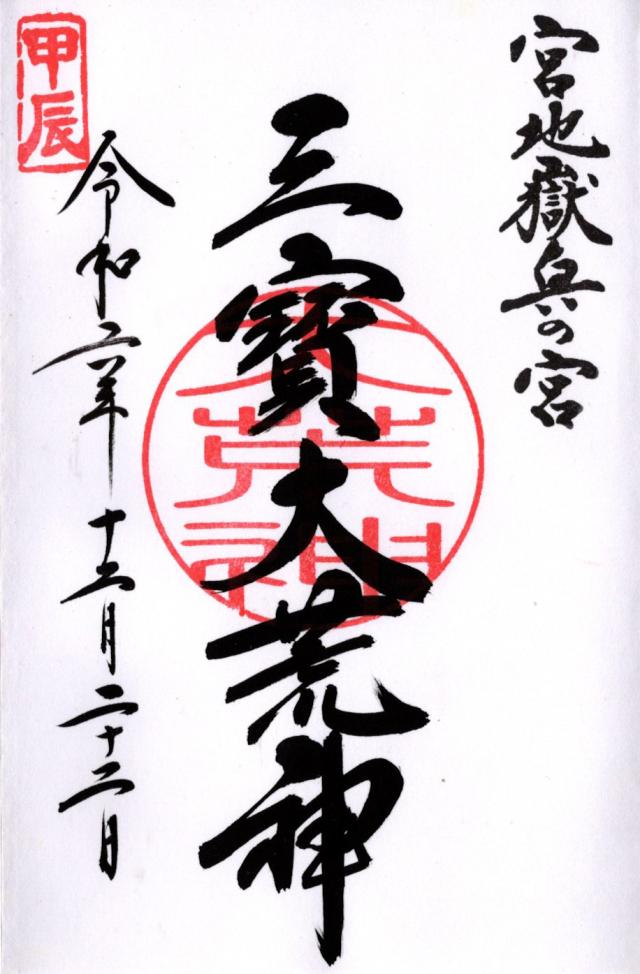 宮地嶽奥の宮
三寶大荒神
大荒神
甲辰
令和六年十二月二十二日